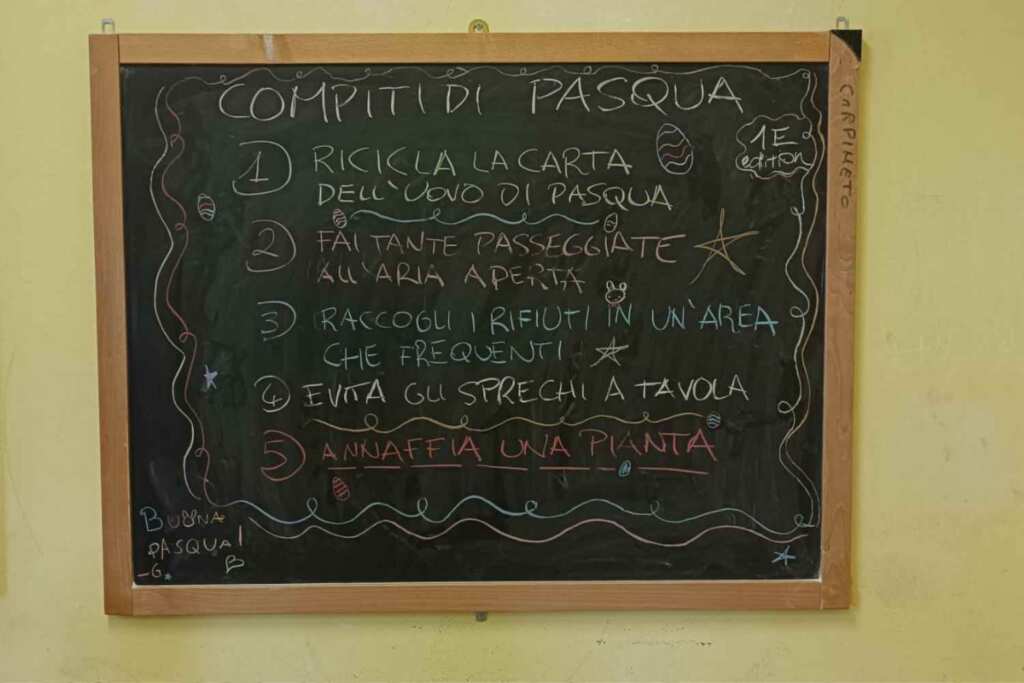 COMPITI DI PASQUA
1E
edition
1 RICICLA LA CARTA
DELL'UOVO DI PASQUA
2 FAI TANTE PASSEGGIATE
ALL'ARIA APERTA
3 RACCOGLI I RIFIUTI IN UN'AREA
CHE FREQUENTI
4 EVITA GLI SPRECHI A TAVOLA
5 ANNAFFIA UNA PIANTA
BUONA
PASQUA!
-G.
CARPINETO